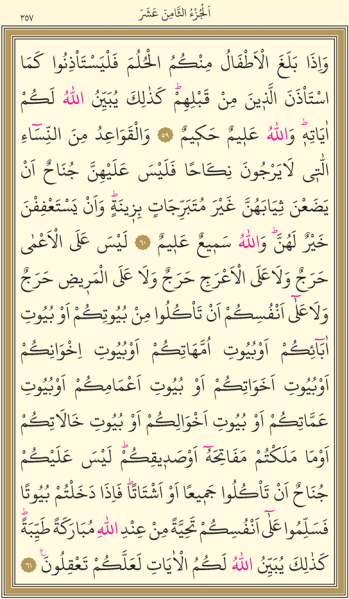 اَلْجُزْءُ الثَّامِنَ عَشَرَ
٣٥٧
وَاِذَا بَلَغَ الْاَطْفَالُ مِنْكُمُ الْحُلُمَ فَلْيَسْتَأْذِنُوا كَمَا
اسْتَأْذَنَ الَّذ۪ينَ مِنْ قَبْلِهِمْۜ كَذٰلِكَ يُبَيِّنُ اللّٰهُ لَكُمْ
اٰيَاتِه۪ۜ وَاللّٰهُ عَل۪يمٌ حَك۪يمٌ ﴿٥٩﴾ وَالْقَوَاعِدُ مِنَ النِّسَٓاءِ
الّٰت۪ي لَا يَرْجُونَ نِكَاحًا فَلَيْسَ عَلَيْهِنَّ جُنَاحٌ اَنْ
يَضَعْنَ ثِيَابَهُنَّ غَيْرَ مُتَبَرِّجَاتٍ بِز۪ينَةٍۜ وَاَنْ يَسْتَعْفِفْنَ
خَيْرٌ لَهُنَّۜ وَاللّٰهُ سَم۪يعٌ عَل۪يمٌ ﴿٦٠﴾ لَيْسَ عَلَى الْاَعْمٰى
حَرَجٌ وَلَا عَلَى الْاَعْرَجِ حَرَجٌ وَلَا عَلَى الْمَر۪يضِ حَرَجٌ
وَلَا عَلٰٓى اَنْفُسِكُمْ اَنْ تَأْكُلُوا مِنْ بُيُوتِكُمْ اَوْ بُيُوتِ
اٰبَٓائِكُمْ اَوْ بُيُوتِ اُمَّهَاتِكُمْ اَوْ بُيُوتِ اِخْوَانِكُمْ
اَوْ بُيُوتِ اَخَوَاتِكُمْ اَوْ بُيُوتِ اَعْمَامِكُمْ اَوْ بُيُوتِ
عَمَّاتِكُمْ اَوْ بُيُوتِ اَخْوَالِكُمْ اَوْ بُيُوتِ خَالَاتِكُمْ
اَوْ مَا مَلَكْتُمْ مَفَاتِحَهُٓ اَوْ صَد۪يقِكُمْۜ لَيْسَ عَلَيْكُمْ
جُنَاحٌ اَنْ تَأْكُلُوا جَم۪يعًا اَوْ اَشْتَاتًاۜ فَاِذَا دَخَلْتُمْ بُيُوتًا
فَسَلِّمُوا عَلٰٓى اَنْفُسِكُمْ تَحِيَّةً مِنْ عِنْدِ اللّٰهِ مُبَارَكَةً طَيِّبَةًۜ
كَذٰلِكَ يُبَيِّنُ اللّٰهُ لَكُمُ الْاٰيَاتِ لَعَلَّكُمْ تَعْقِلُونَ۟ ﴿٦١﴾